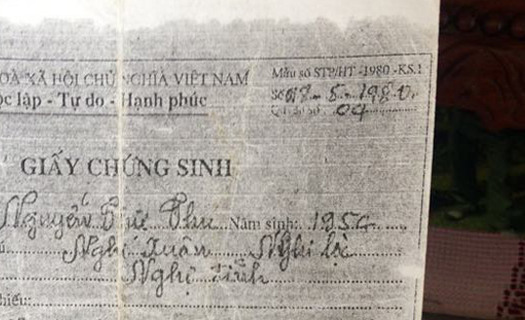 OÀ XÃ HỘI CHỦ NGHĨA VIỆT NAM
ộc lập - Tự do - Hạnh phúc
Mẫu số STP/HT -1980 -KS.1
Số 18-5-1980
Quyển số 04
GIẤY CHỨNG SINH
Nguyễn Thu Năm sinh: 1954
Nghi Xuân Nghi lộc
Nghệ Tĩnh
hiếu: